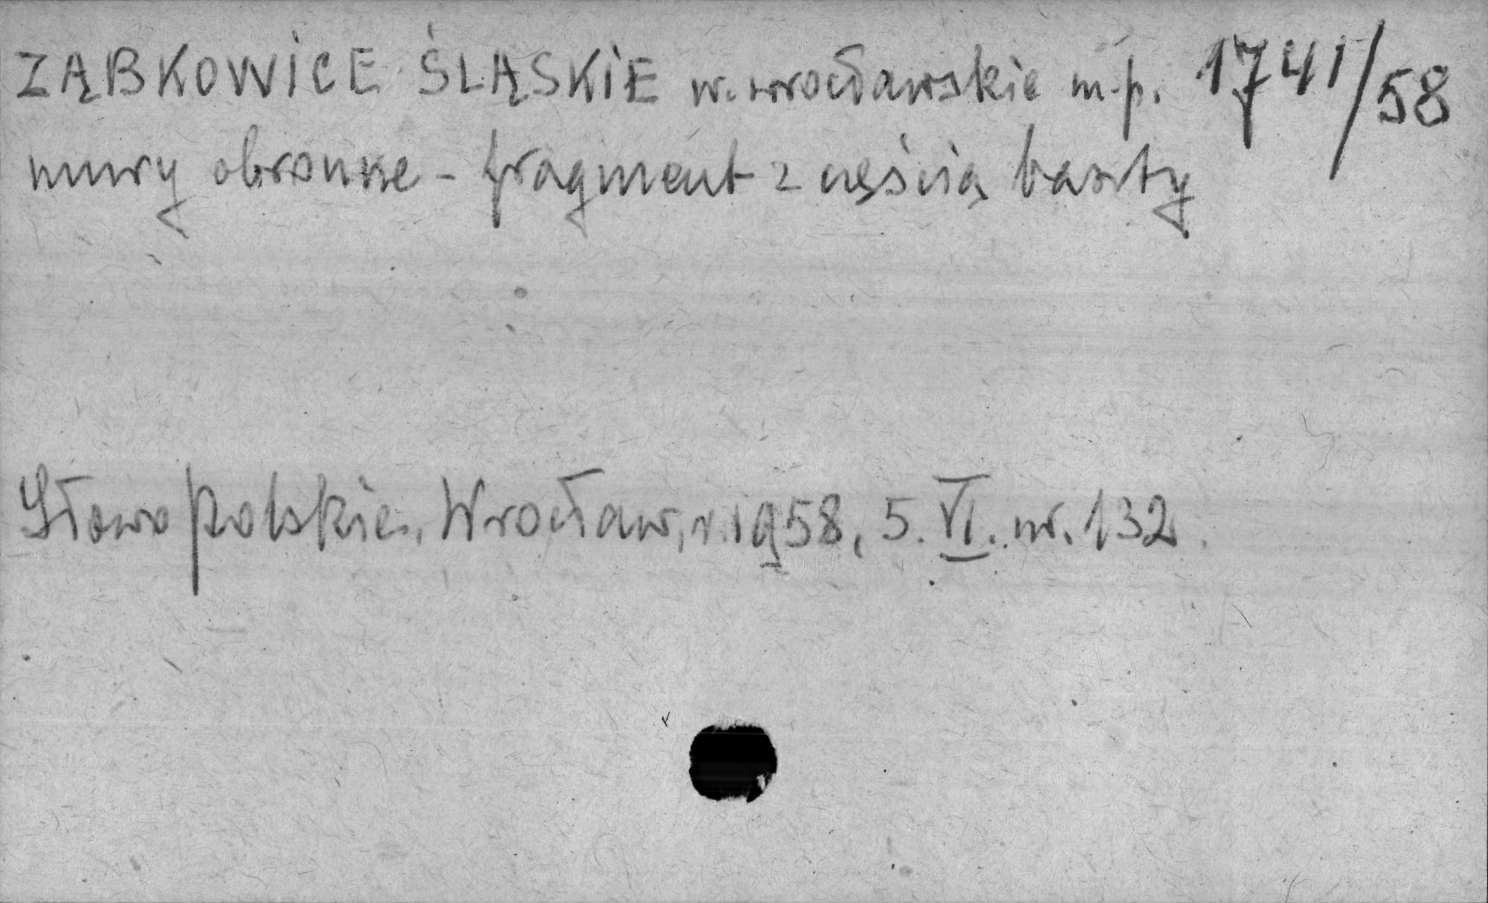 ZĄBKOWICE ŚLĄSKIE w. wrocławskie m.p. 1741/58
mury obronne - fragment z częścią baszty
Słowo Polskie, Wrocław, r. 1958, 5. VI. nr. 132.